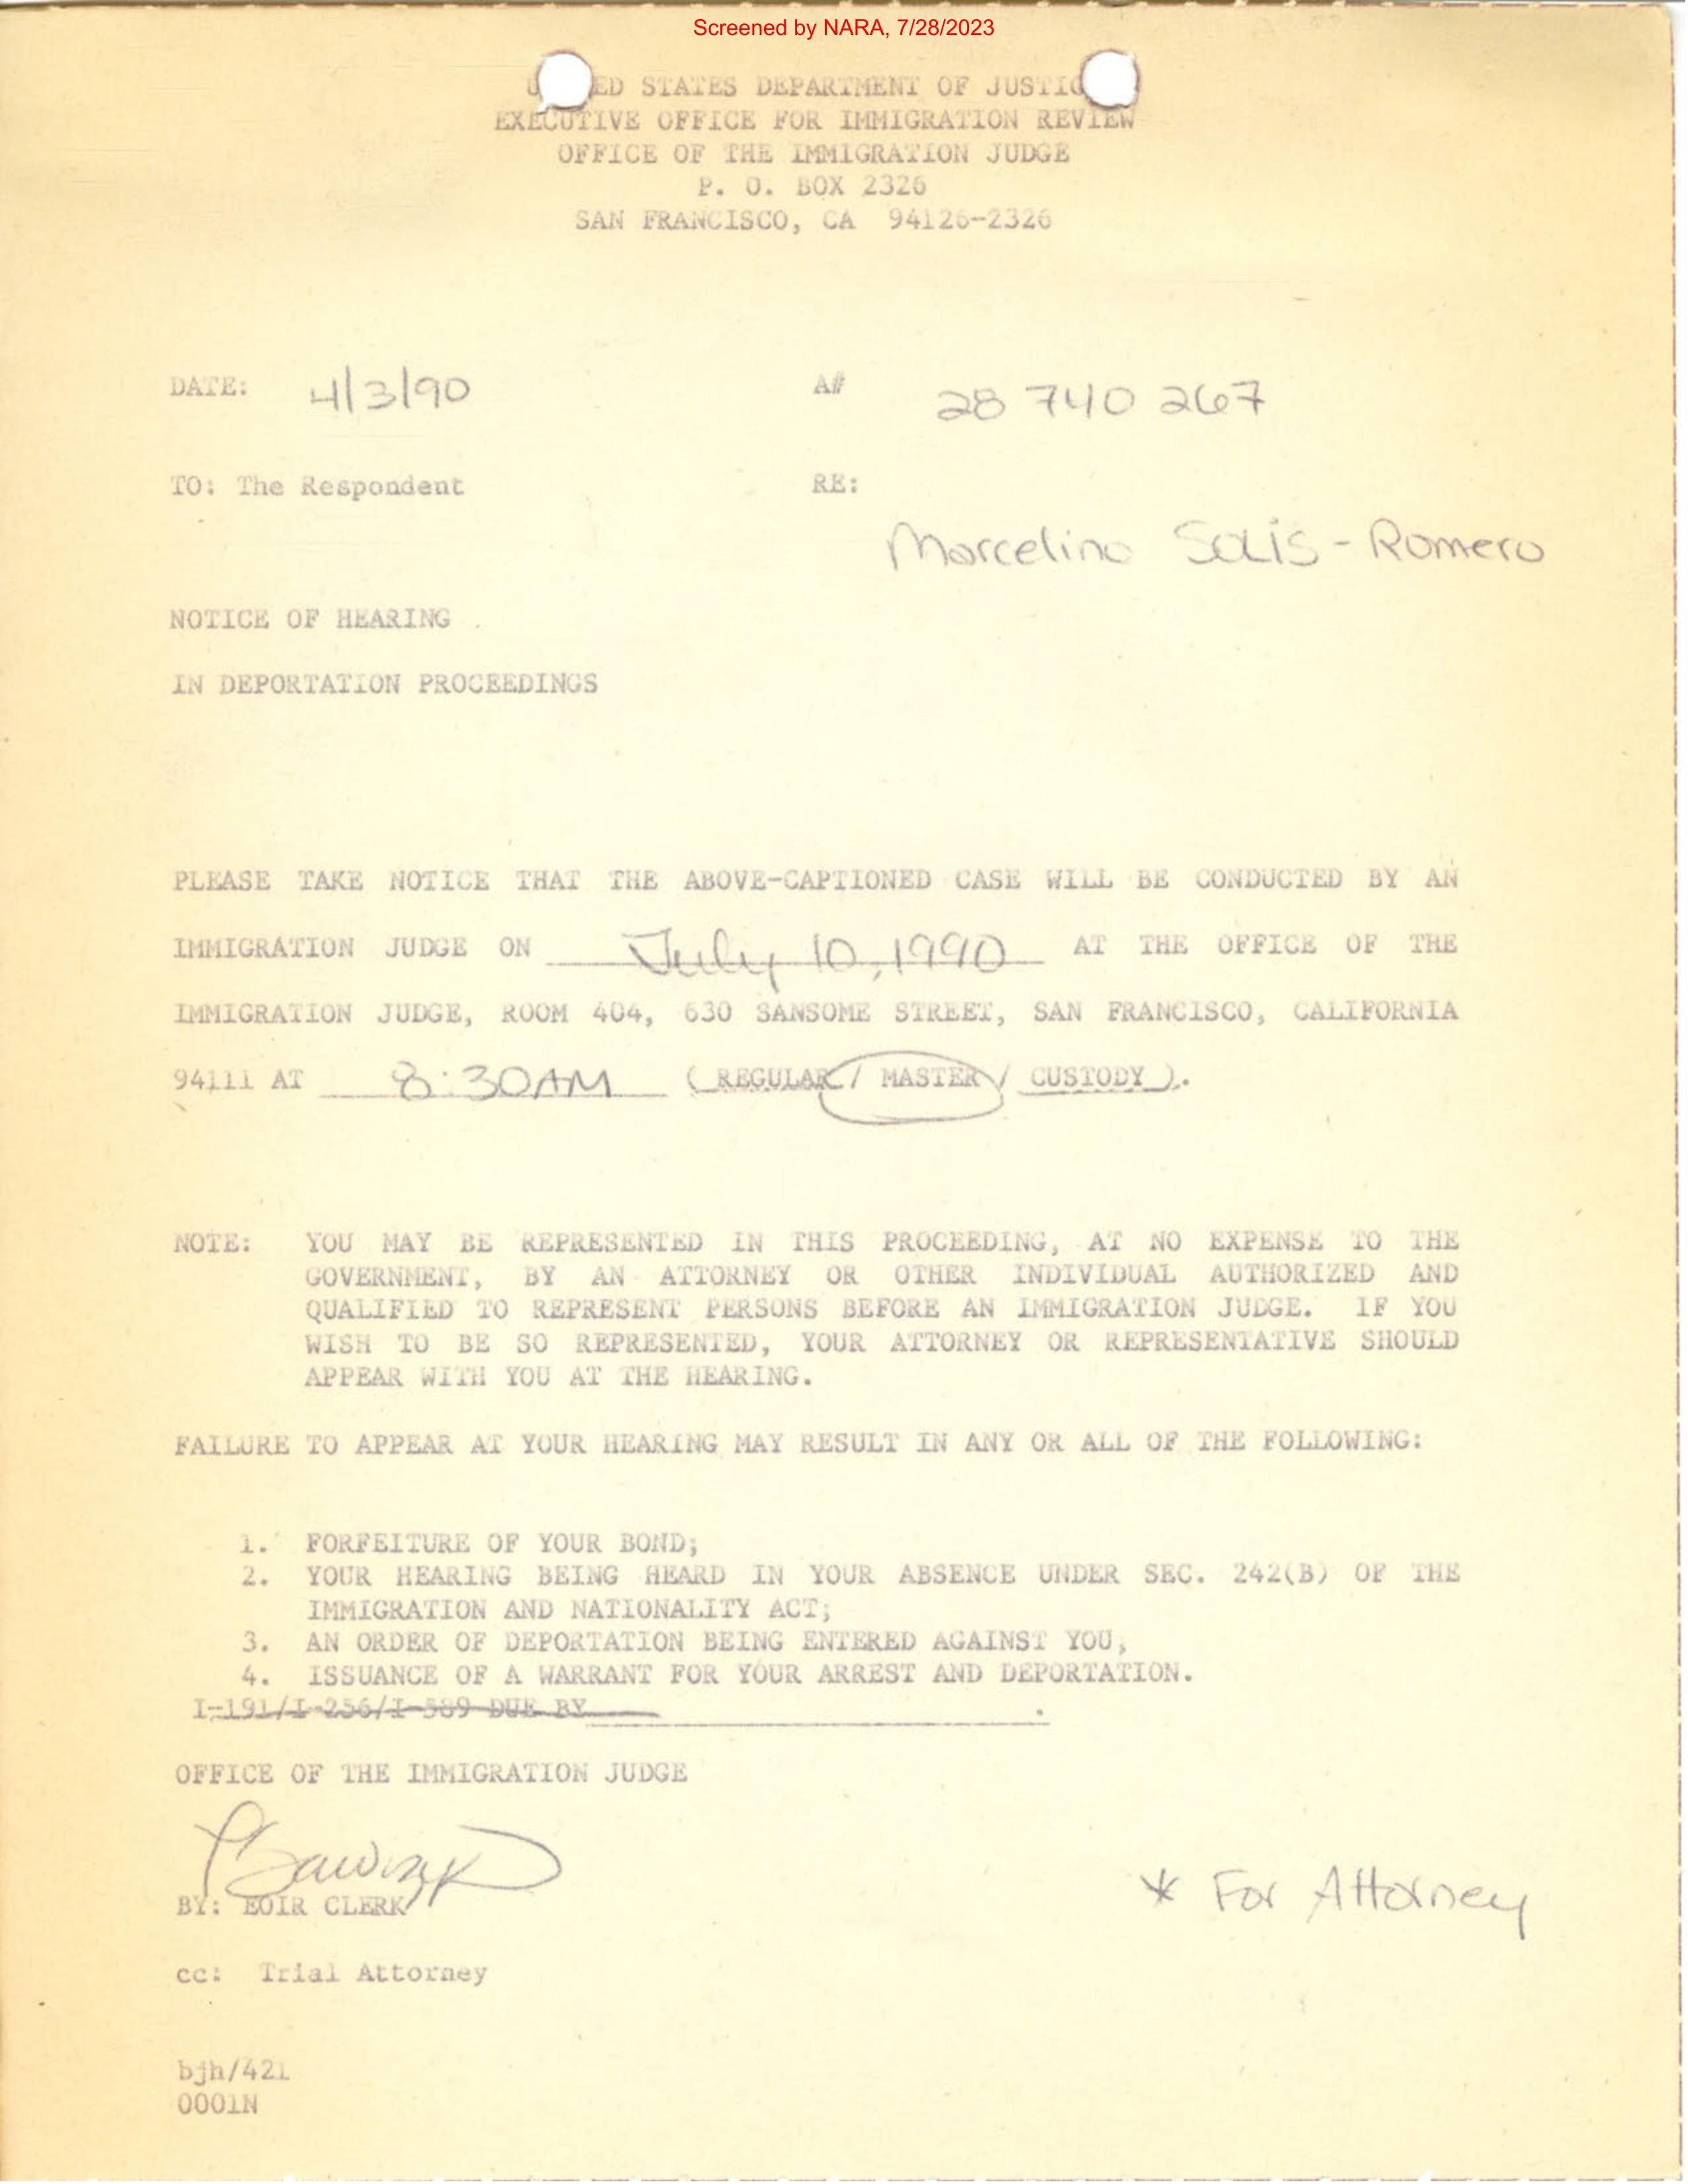 Screened by NARA, 7/28/2023
ED STATES DEPARTMENT OF JUSTIC
EXECUTIVE OFFICE FOR IMMIGRATION REVIEW
OFFICE OF THE IMMIGRATION JUDGE
P. O. BOX 2326
SAN FRANCISCO, CA 94126-2326
DATE: 4/3/90 A# 28 740 267
TO: The Respondent RE:
Marcelino Solis-Romero
NOTICE OF HEARING
IN DEPORTATION PROCEEDINGS
PLEASE TAKE NOTICE THAT THE ABOVE-CAPTIONED CASE WILL BE CONDUCTED BY AN
IMMIGRATION JUDGE ON July 10, 1990 AT THE OFFICE OF THE
IMMIGRATION JUDGE, ROOM 404, 630 SANSOME STREET, SAN FRANCISCO, CALIFORNIA
94111 AT 8:30AM (REGULAR / MASTER / CUSTODY ).
NOTE: YOU MAY BE REPRESENTED IN THIS PROCEEDING, AT NO EXPENSE TO THE
GOVERNMENT, BY AN ATTORNEY OR OTHER INDIVIDUAL AUTHORIZED AND
QUALIFIED TO REPRESENT PERSONS BEFORE AN IMMIGRATION JUDGE. IF YOU
WISH TO BE SO REPRESENTED, YOUR ATTORNEY OR REPRESENTATIVE SHOULD
APPEAR WITH YOU AT THE HEARING.
FAILURE TO APPEAR AT YOUR HEARING MAY RESULT IN ANY OR ALL OF THE FOLLOWING:
1. FORFEITURE OF YOUR BOND;
2. YOUR HEARING BEING HEARD IN YOUR ABSENCE UNDER SEC. 242(B) OF THE
IMMIGRATION AND NATIONALITY ACT;
3. AN ORDER OF DEPORTATION BEING ENTERED AGAINST YOU,
4. ISSUANCE OF A WARRANT FOR YOUR ARREST AND DEPORTATION.
I-191/I-256/I-589 DUE BY .
OFFICE OF THE IMMIGRATION JUDGE
BY: EOIR CLERK
* For Attorney
cc: Trial Attorney
bjh/421
0001N